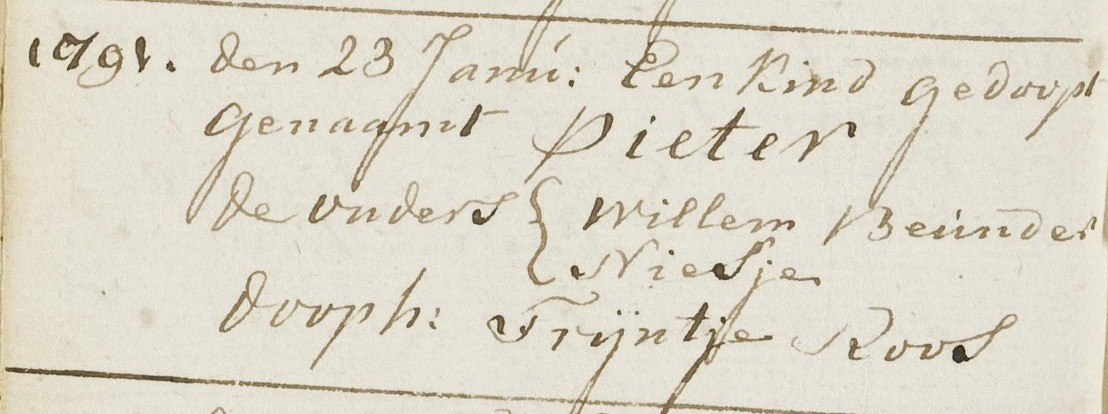 1791. den 23 Janu: Een Kind gedoopt
genaamt Pieter
de ouders { Willem Beunder
Niesje
dooph: Trijntje Roos